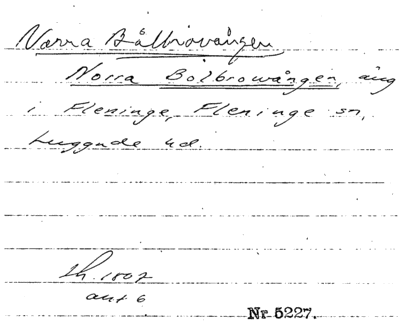 Norra Bålbrovången
Norra Bölbrowången, äng
i Fleninge, Fleninge sn,
Luggude hd.
Sh. 1807
akt 6
Nr 5227.